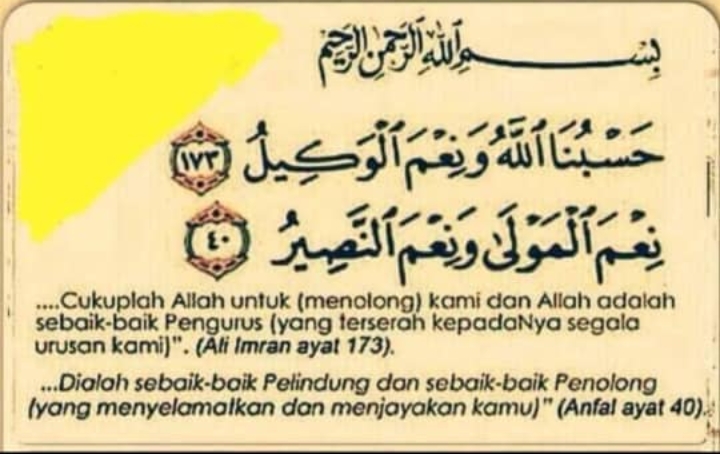 بِسْمِ ٱللَّهِ ٱلرَّحْمَٰنِ ٱلرَّحِيمِ
حَسْبُنَا ٱللَّهُ وَنِعْمَ ٱلْوَكِيلُ ١٧٣
نِعْمَ ٱلْمَوْلَىٰ وَنِعْمَ ٱلنَّصِيرُ ٤٠
....Cukuplah Allah untuk (menolong) kami dan Allah adalah
sebaik-baik Pengurus (yang terserah kepadaNya segala
urusan kami)". (Ali Imran ayat 173).
...Dialah sebaik-baik Pelindung dan sebaik-baik Penolong
(yang menyelamatkan dan menjayakan kamu)" (Anfal ayat 40).